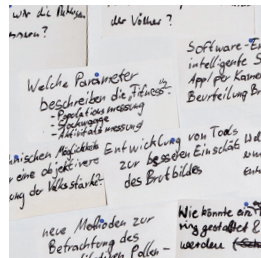 wir die
der Völker?
Software-
intelligente S
App/per Kamera
Beurteilung Br
Welche Parameter
beschreiben die "Fitness"
- Populationsmessung
- Stockwaage
- Aktivitätsmessung
nischen Möglichkeite
eine objektivere
ung der Volksstärke?
Entwicklung von Tools
zur besseren Einschätz
des Brutbildes
neue Methoden zur
Betrachtung des
Pollen-
Wie könnte ein
ring gestaltet
werden